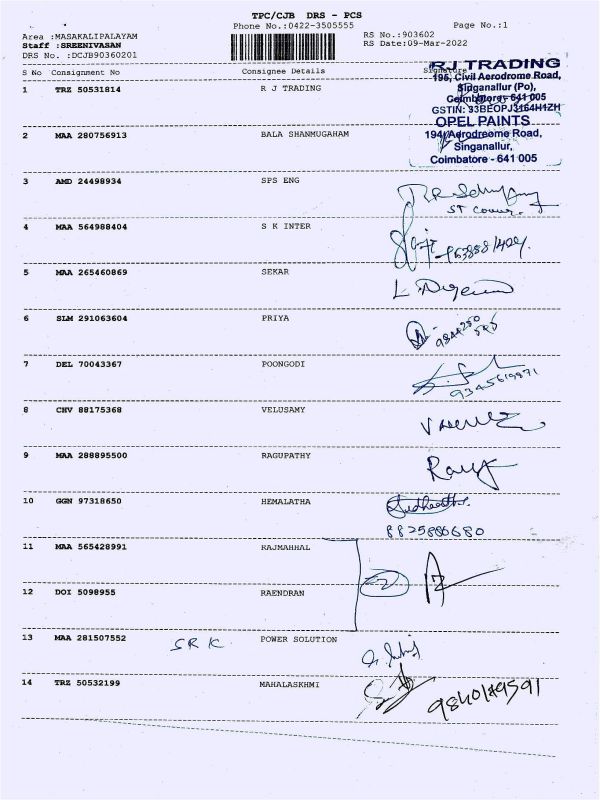 TPC/CJB DRS - PCS
Phone No.:0422-3505555 Page No.:1
Area :MASAKALIPALAYAM RS No.:903602
Staff :SREENIVASAN RS Date:09-Mar-2022
DRS No. :DCJB90360201
S No Consignment No Consignee Details Signature
RJ TRADING
195, Civil Aerodrome Road,
Singanallur (Po),
Coimbatore-641 005
GSTIN: 33BEOPJ3164H1ZH
1 TRZ 50531814 R J TRADING
OPEL PAINTS
194, Aerodreome Road,
Singanallur,
Coimbatore - 641 005
2 MAA 280756913 BALA SHANMUGAHAM
3 AMD 24498934 SPS ENG
ST
4 MAA 564988404 S K INTER
5 MAA 265460869 SEKAR
6 SLM 291063604 PRIYA
7 DEL 70043367 POONGODI
8 CHV 88175368 VELUSAMY
9 MAA 288895500 RAGUPATHY
10 GGN 97318650 HEMALATHA
8825886680
11 MAA 565428991 RAJMAHHAL
12 DOI 5098955 RAENDRAN
13 MAA 281507552 SRK POWER SOLUTION
14 TRZ 50532199 MAHALASKHMI